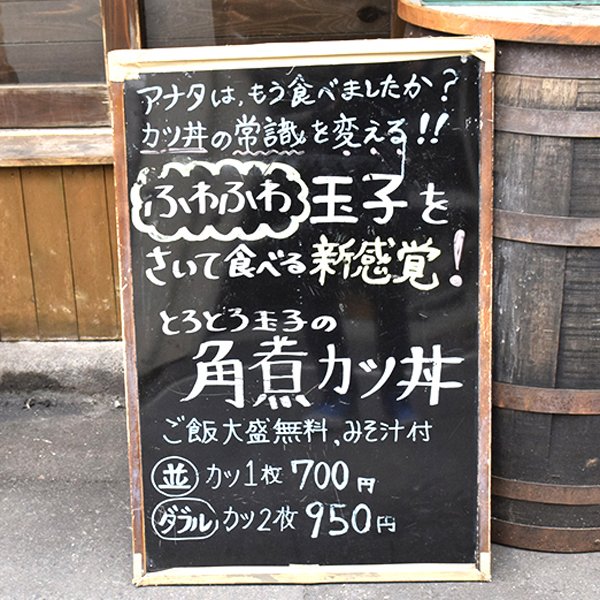 アナタは、もう食べましたか？
カツ丼の常識を変える!!
ふわふわ玉子を
さいて食べる新感覚!
とろとろ玉子の
角煮カツ丼
ご飯大盛無料、みそ汁付
並 カツ1枚 700円
ダブル カツ2枚 950円